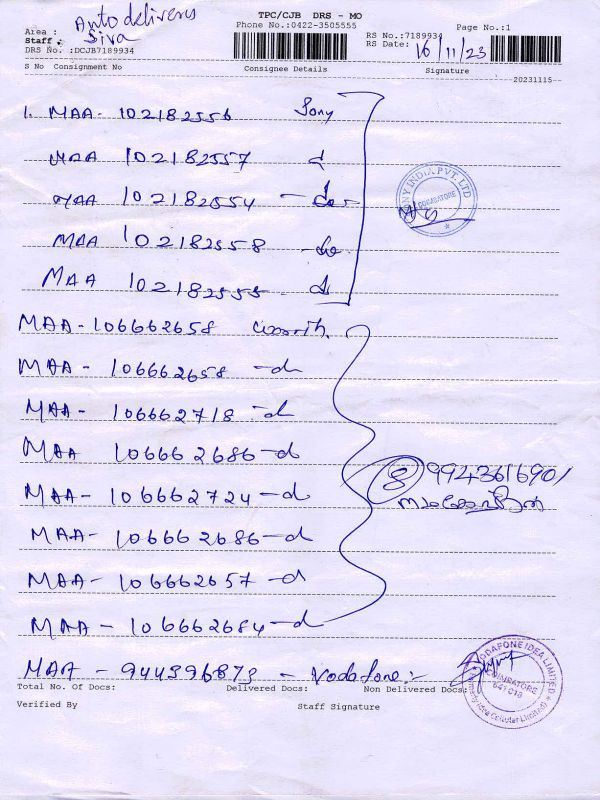 Auto deliverys
TPC/CJB DRS - MO
Phone No.:0422-3505555
Page No.:1
Area :
Staff : Siva
DRS No. :DCJB7189934
RS No.:7189934
RS Date: 16/11/23
S No Consignment No Consignee Details Signature
20231115--
1. MAA- 102182556 Sony
MAA 102182557 d
MAA 102182554 - do
MAA 102182558 - do
MAA 102182555 d
SONY INDIA PVT. LTD
COIMBATORE
MAA-106662658
MAA- 106662658 -d
MAA- 106662718 -d
MAA 106662686 -d
MAA- 106662724 -d
MAA- 106662686 -d
MAA- 106662657 -d
MAA- 106662684 -d
8 9943616901
MAA - 944596873 - Vodafone:-
VODAFONE IDEA LIMITED
COIMBATORE
641 018
(Formerly Idea Cellular Limited)
Total No. Of Docs: Delivered Docs: Non Delivered Docs:
Verified By Staff Signature